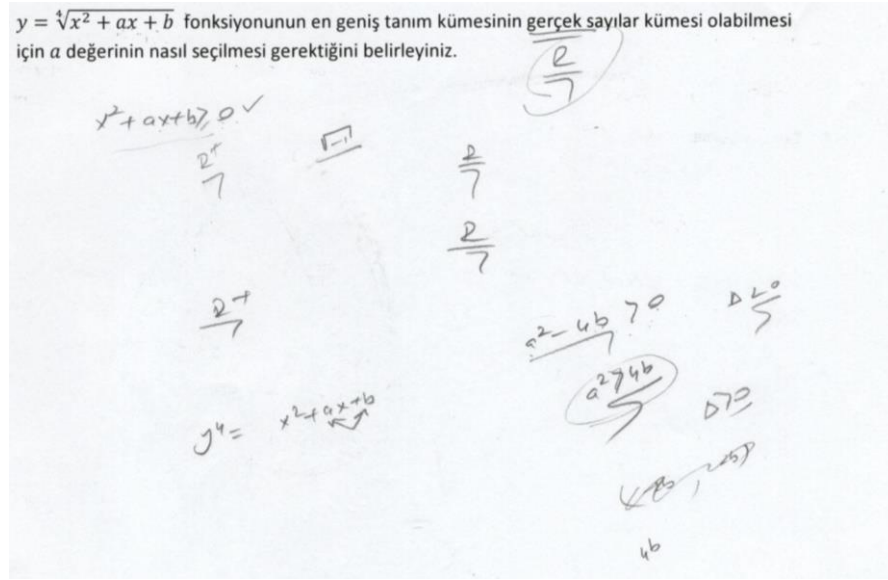 y = ∜(x² + ax + b) fonksiyonunun en geniş tanım kümesinin gerçek sayılar kümesi olabilmesi
için a değerinin nasıl seçilmesi gerektiğini belirleyiniz.
R
x²+ax+b≥0 ✓
R⁺
√-1
R
R
R⁺
a²-4b>0
Δ<0
a²>4b
Δ>0
y⁴= x²+ax+b
4b